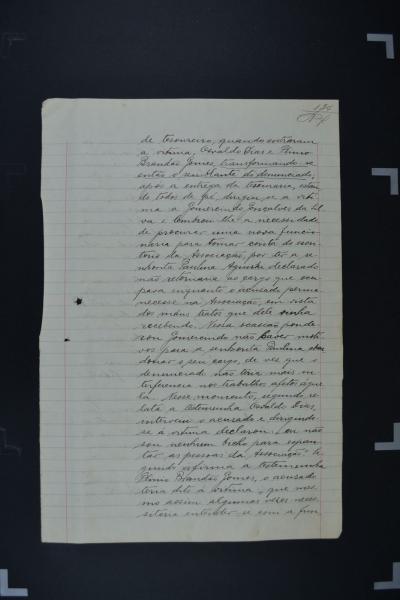 184
de thesoureiro, quando entraram
a victima, Osvaldo Dias e Plinio
Brandão Gomes, transformando-se
então o semblante do denunciado,
após a entrega da thesouraria, estan-
do todos de pé, dirigiu-se a victi-
ma a Gomercindo Gonçalves da Sil-
va e lembrou-lhe a necessidade
de procurar uma nova funccio-
naria para tomar conta do escri-
torio da Associação, por ter a se-
nhorita Paulina declarado
não retornaria ao cargo que occu-
pava enquanto o accusado perma-
necesse na Associação, em vista
dos máus tratos que dele vinha
recebendo. Nessa ocasião ponde-
rou Gomercindo não haver moti-
vos para a senhorita Paulina aban-
donar o seu cargo, de vez que o
denunciado não teria mais in-
terferencia nos trabalhos afetos áque-
la. Nesse momento, segundo re-
lata a testemunha Osvaldo Dias,
interveiu o acusado e dirigindo-
se á victima declarou: eu não
sou nenhum bicho para espan-
tar as pessoas da Associação". Se-
gundo afirma a testemunha
Plinio Brandão Gomes, o acusado
teria dito á victima "que mes-
mo assim algumas vezes neces-
sitaria entender-se com a fun